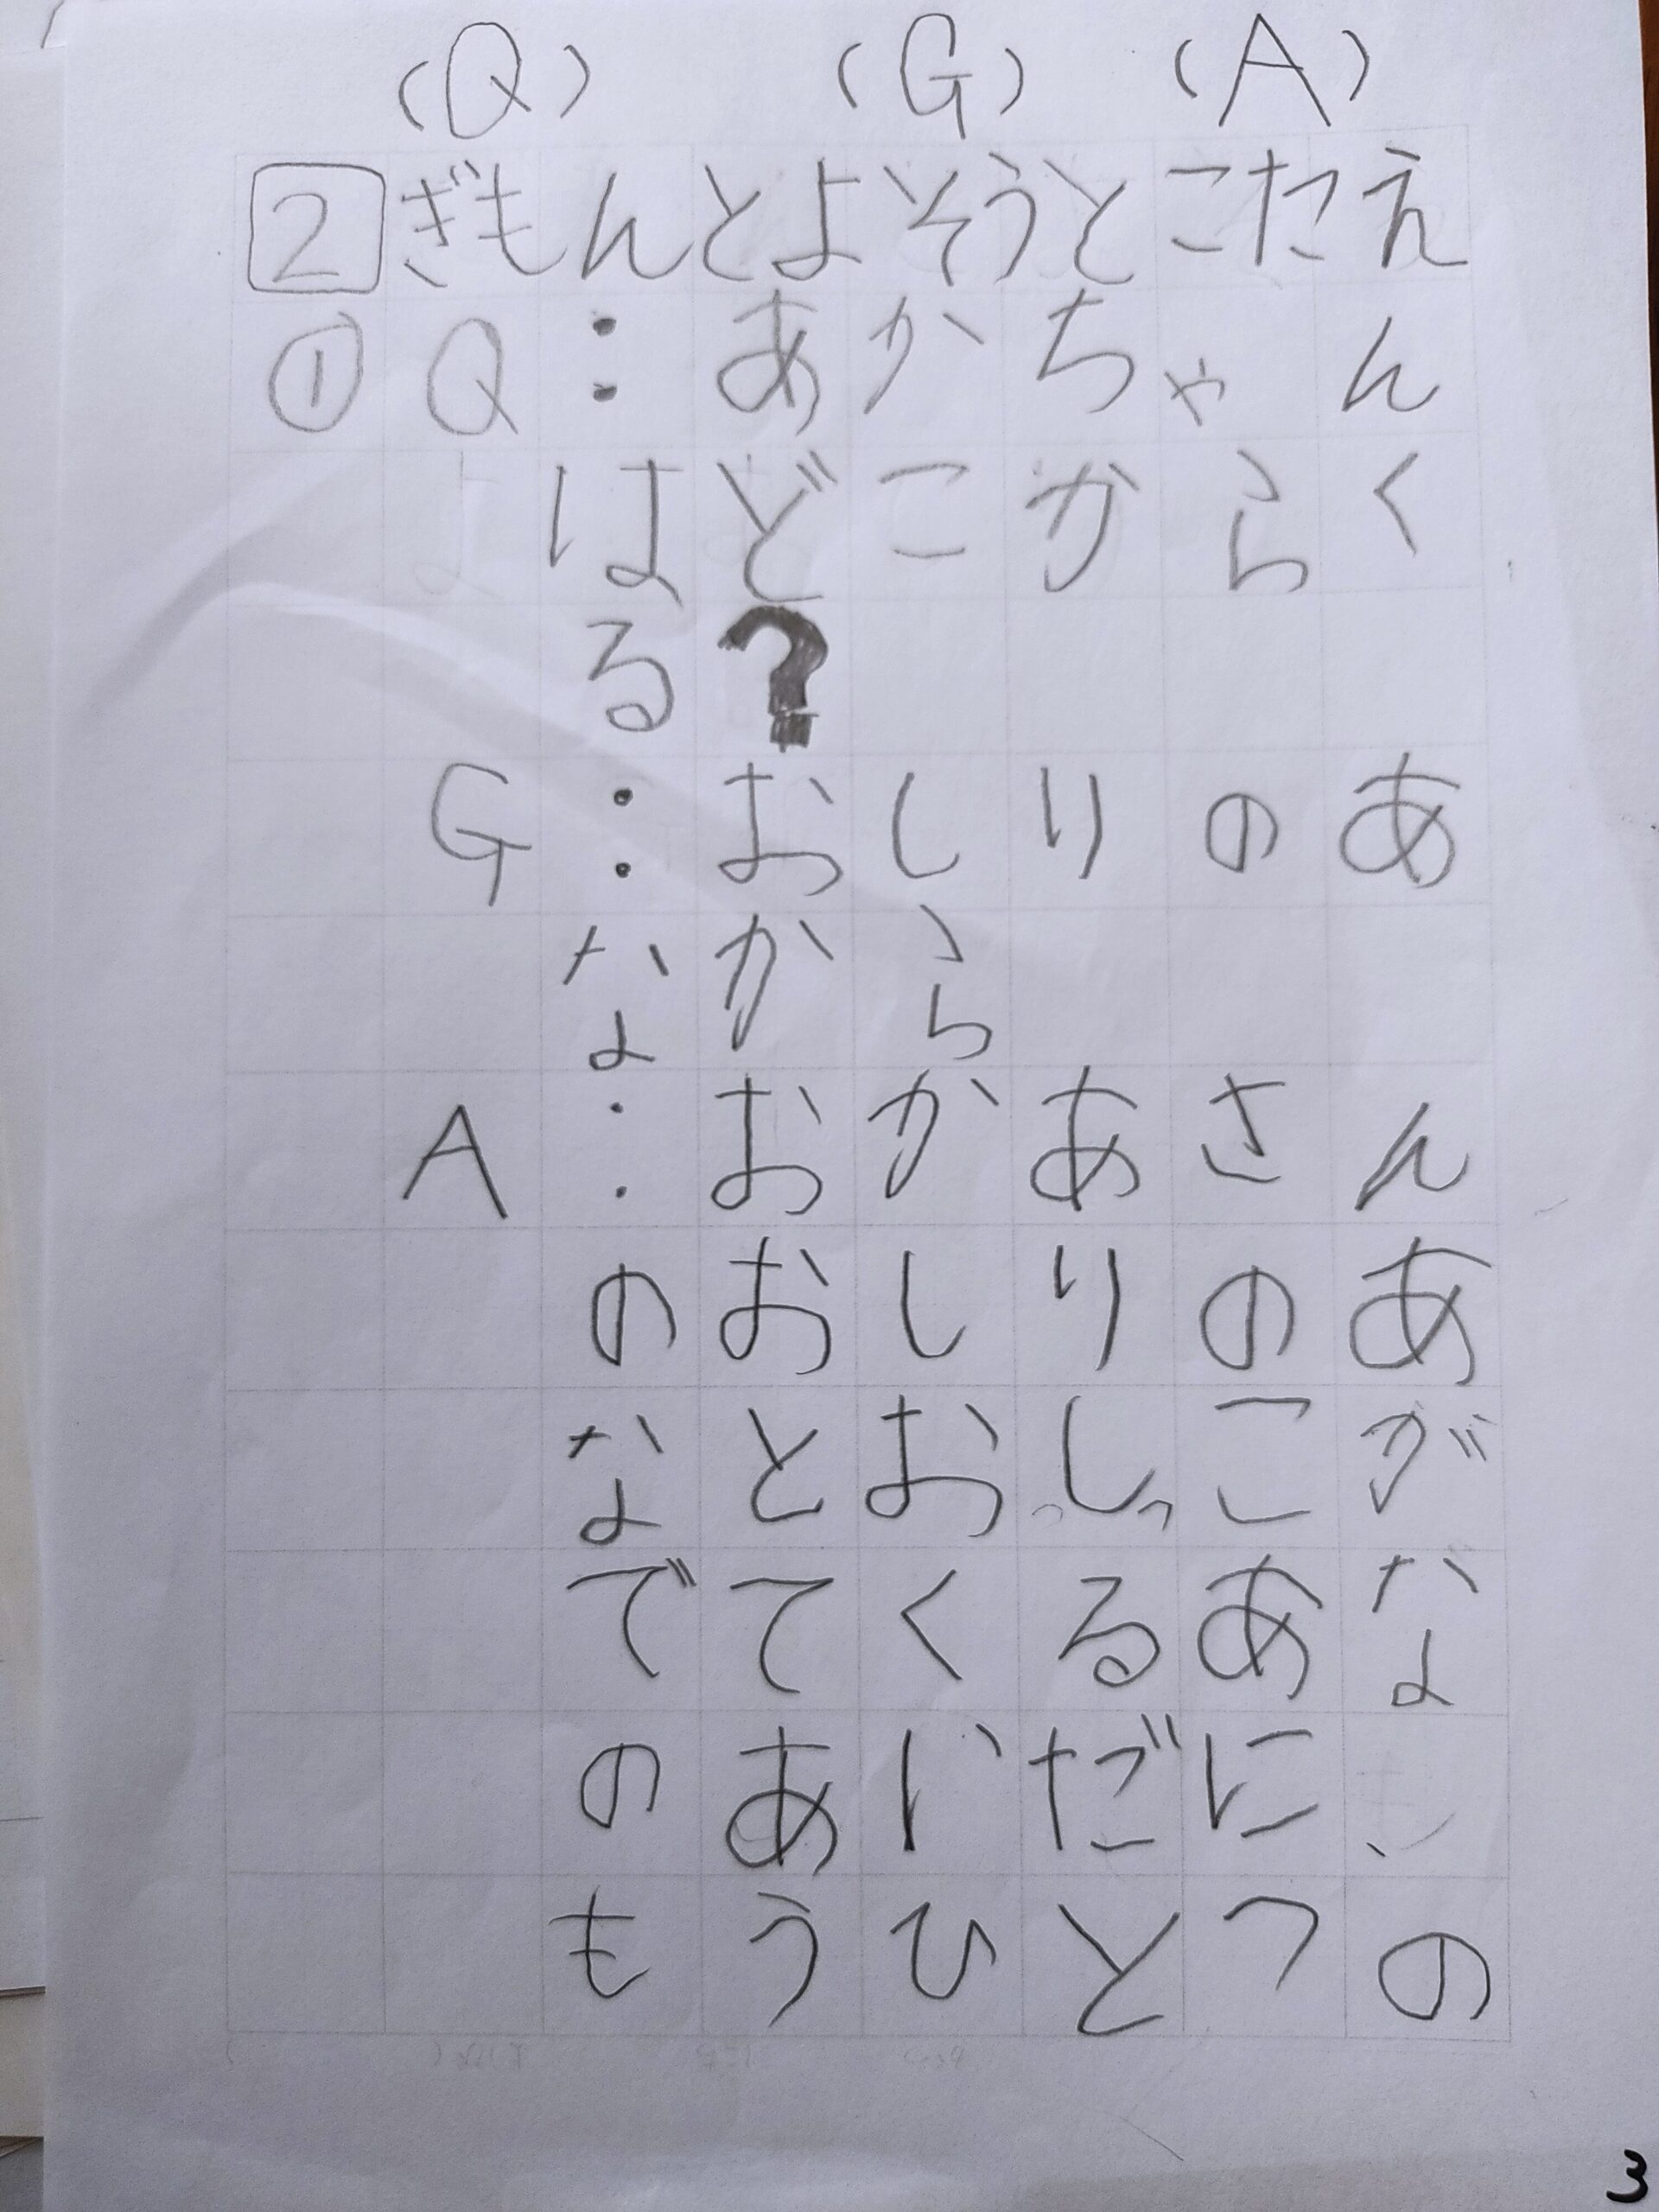 (Q) (G) (A)
2 ぎもんとよそうとこたえ
① Q:あかちゃん
はどこからく
る?
G:おしりのあ
なから
A:おかあさん
のおしりのあ
なとおしっこが
でてくるあな
のあいだに
もうひとつの
3